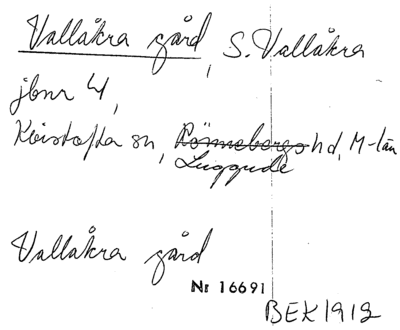 Vallåkra gård, S. Vallåkra
jbnr 4,
Kvistofta sn, Rönnebergs hd, M-län
Luggude
Vallåkra gård
Nr 16691
BEK 1912